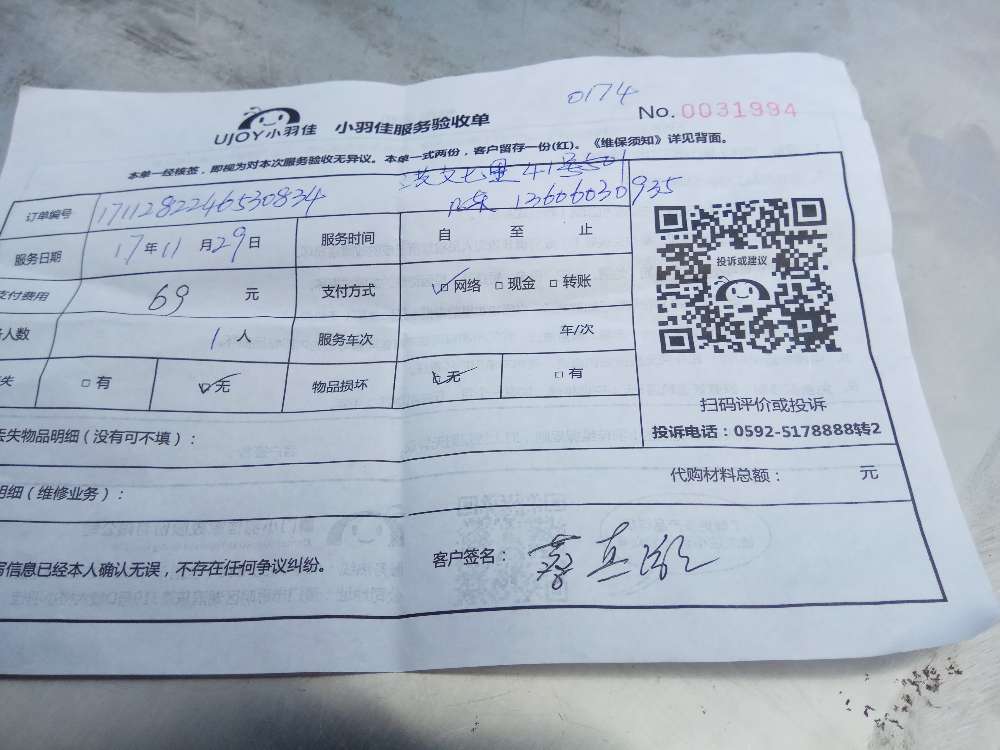 0174
UJOY小羽佳 小羽佳服务验收单 No. 0031994
本单一经核签，即视为对本次服务验收无异议。本单一式两份，客户留存一份(红)。《维保须知》详见背面。
洪文七里 41号501
订单编号 1711282246530834 13606030935
服务日期 17年11月29日 服务时间 自 至 止
支付费用 69 元 支付方式 网络 现金 转账
人数 1人 服务车次 车/次
失 有 无 物品损坏 无 有
投诉或建议
扫码评价或投诉
投诉电话：0592-5178888转2
丢失物品明细（没有可不填）：
代购材料总额： 元
明细（维修业务）：
写信息已经本人确认无误，不存在任何争议纠纷。 客户签名：